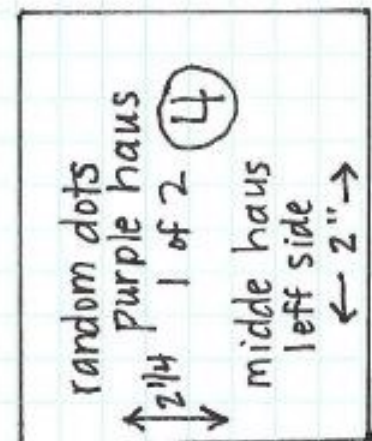 random dots
purple haus
2"/4 1 of 2 4
midde haus
left side
← 2" →